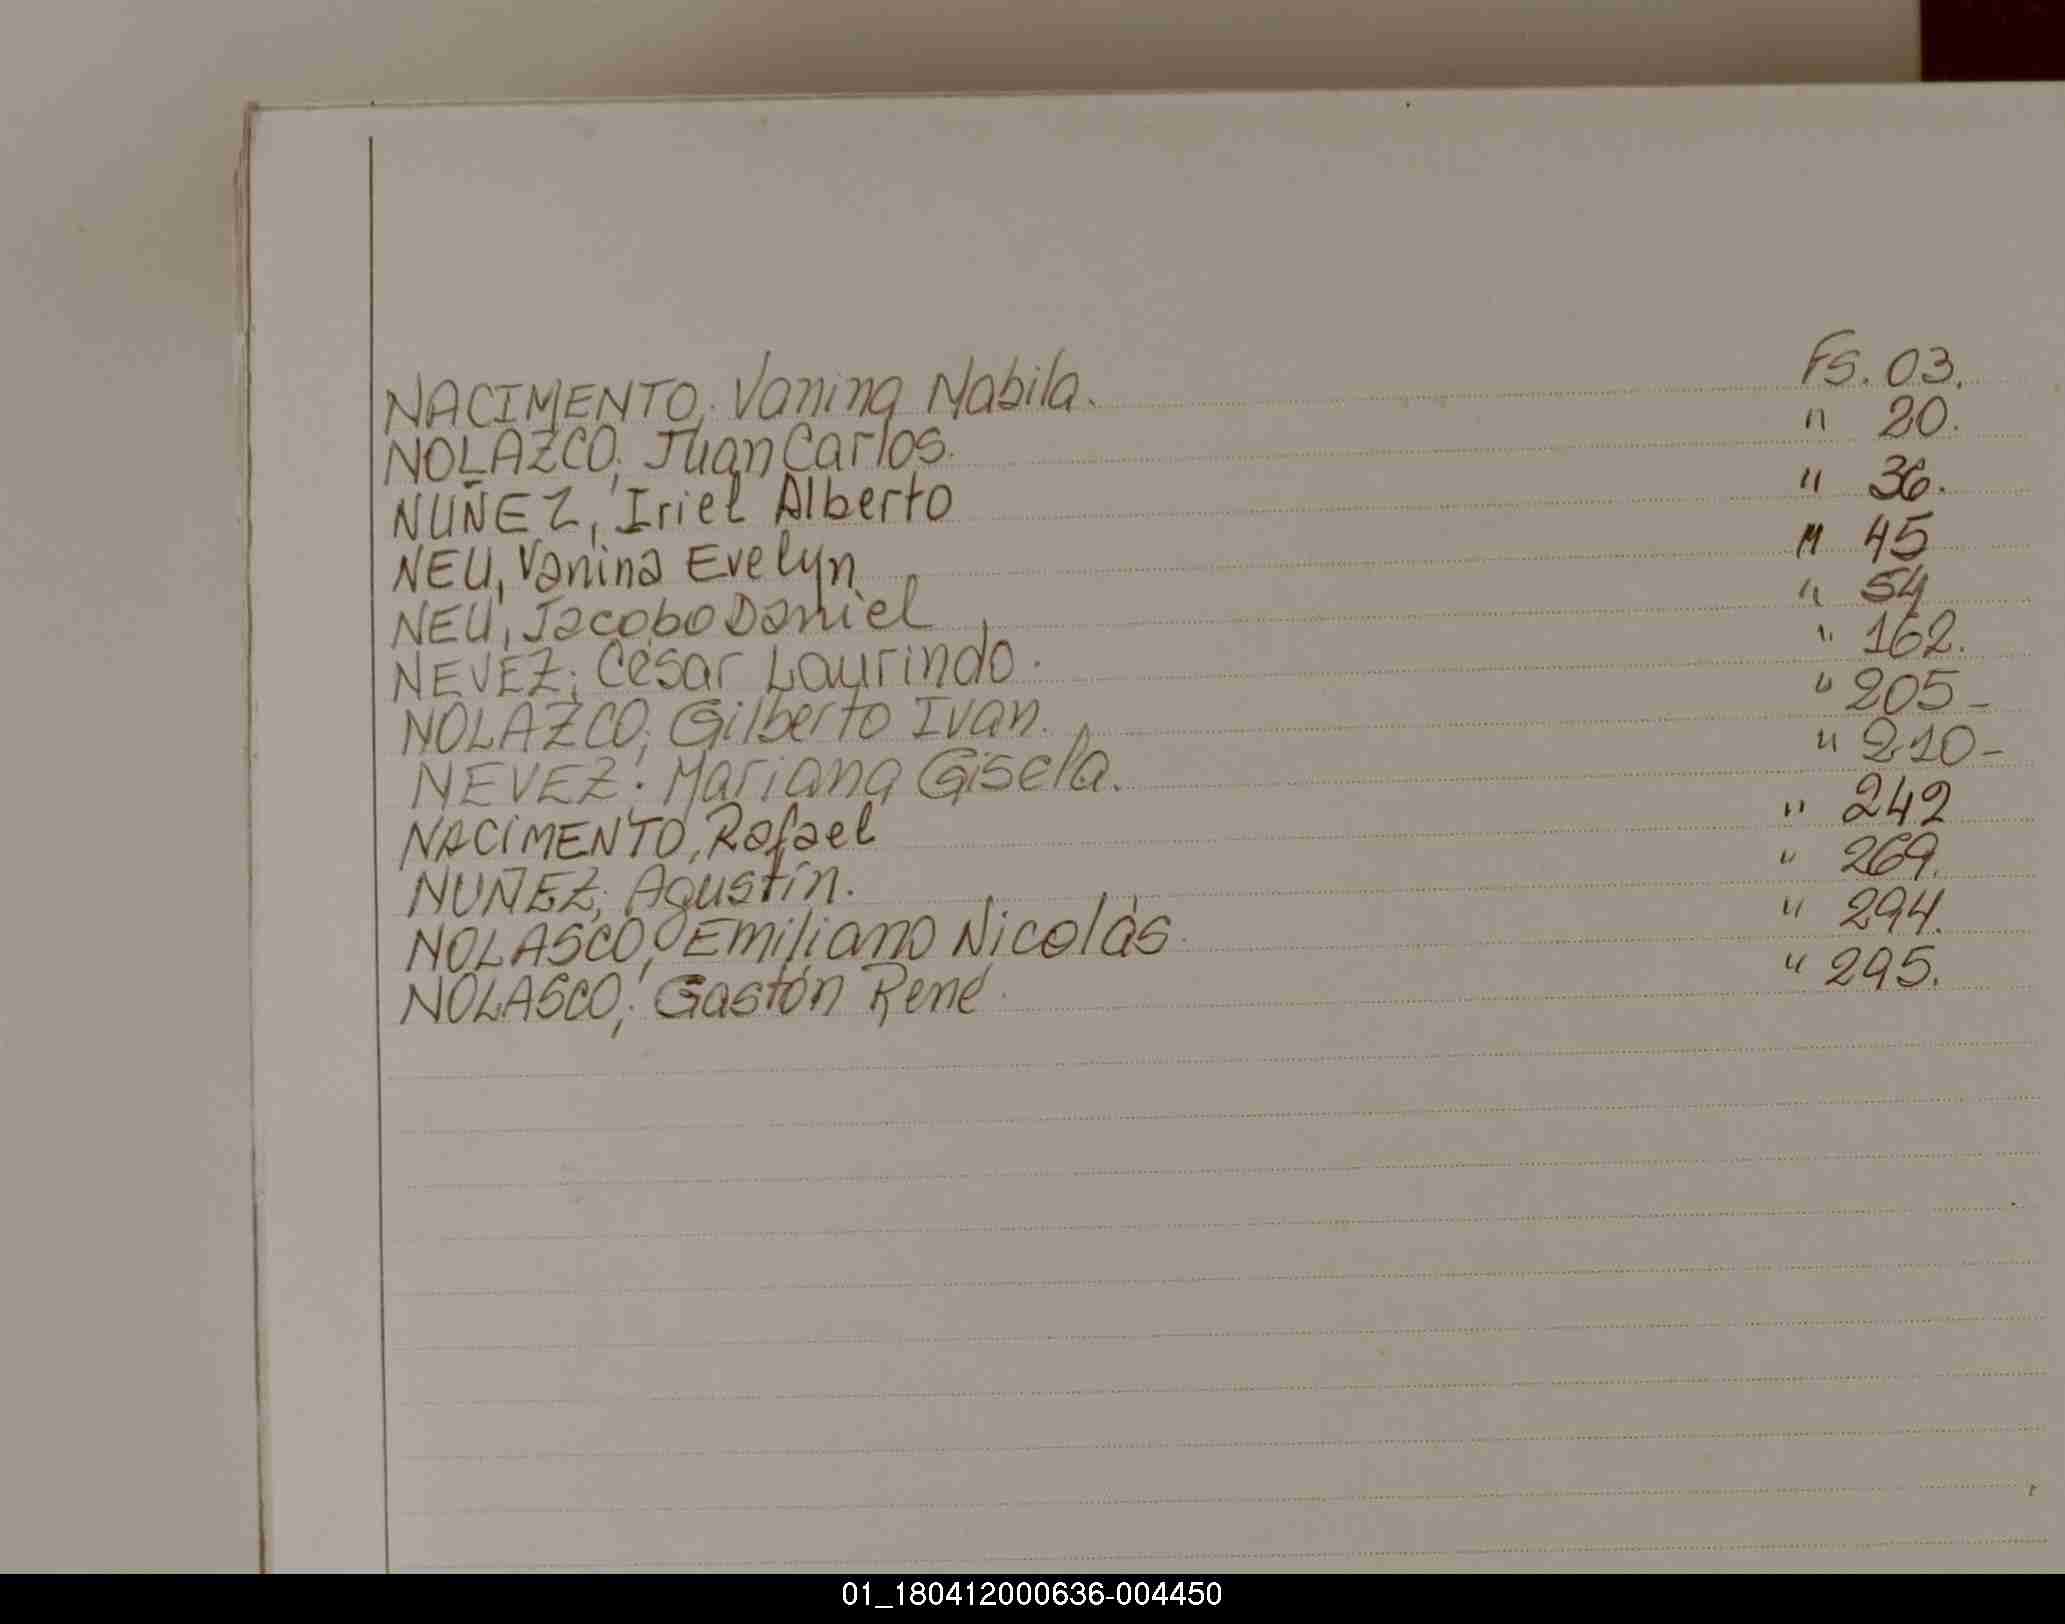 NACIMENTO, Vanina Nabila. Fs. 03.
NOLAZCO, Juan Carlos. " 20.
NUÑEZ, Iriel Alberto " 36.
NEU, Vanina Evelyn " 45
NEU, Jacobo Daniel " 54
NEVEZ; César Laurindo. " 162.
NOLAZCO; Gilberto Ivan. " 205-
NEVEZ; Mariana Gisela. " 210-
NACIMENTO, Rafael " 242
NUÑEZ; Agustín. " 269.
NOLASCO; Emiliano Nicolás. " 294.
NOLASCO; Gastón René. " 295.
01_180412000636-004450